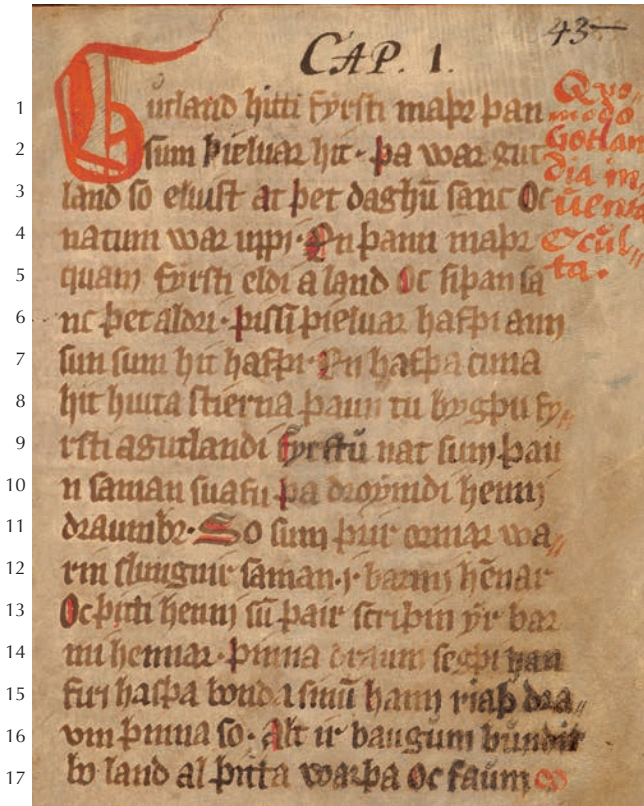 43
CAP. I.
1 Gutland hitti fyrsti maþr þan
2 sum þieluar hit· þa war gut
3 land so eluist at þet daghū sanc Oc
4 natum war uppi· En þann maþr
5 quam fyrsti eldi a land Oc siþan sa
6 nc þet aldri· þissi þieluar hafþi ann
7 sun sum hit hafþi· En hafþa cuna
8 hit huita stierna þaun tu bygþu fy〃
9 rsti agutlandi fyrstū nat sum þau
10 n saman suafu þa droymdi hennj
11 draumbr· So sum þrir ormar wa〃
12 rin slungnir saman· j· barmj hēnar
13 Oc þytti hennj sū þair scriþin yr bar
14 mi hennar· þinna draum segþi han
15 firi hasþa bonda sinū hann riaþ dra〃
16 vm þinna so· Alt ir baugum bundit
17 bo land al þitta warþa oc faum oo
Quo〃
modo
Gotlan
dia in
uenta
Occul〃
ta.